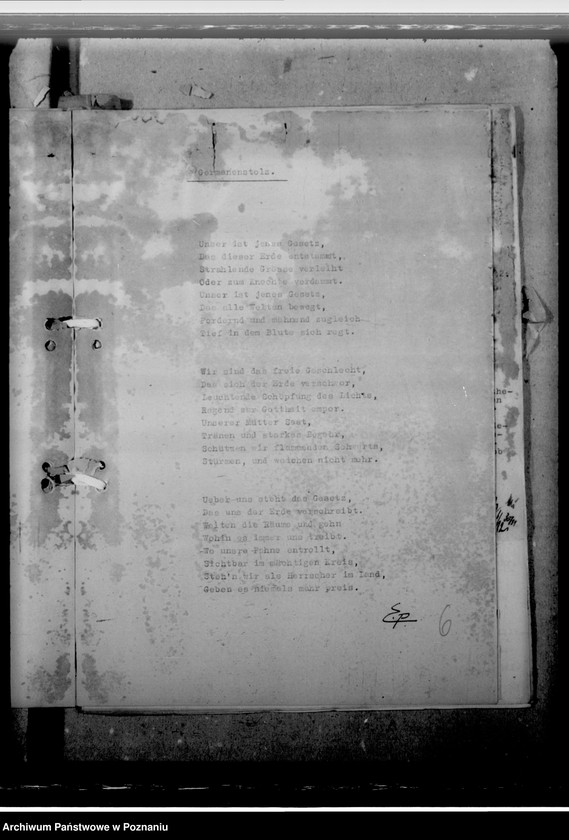 Germanenstolz.
Unser ist jenes Gesetz,
Das dieser Erde entstammt,
Strahlende Grösse verleiht
Oder zum Knechte verdammt.
Unser ist jenes Gesetz,
Das alle Welten bewegt,
Fordernd und mahnend zugleich
Tief in dem Blute sich regt.
Wir sind das freie Geschlecht,
Das sich der Erde verschwor,
Leuchtende Schöpfung des Lichts,
Ragend zur Gottheit empor.
Unserer Mütter Saat,
Tranen und starkes
Schützen wir flammenden Schwerts,
Stürmen, und weichen nicht mehr.
Ueber uns steht das Gesetz,
Das uns der Erde verschreibt.
Zeiten die Räume und
Wohin es immer uns treibt.
Wo unsre Fahne entrollt,
Sichtbar im mächtigen Kreis,
Steh'n wir als Herrscher im Land,
Geben es niemals mehr preis.
6
he-
n
e-
b
Archiwum Państwowe w Poznaniu